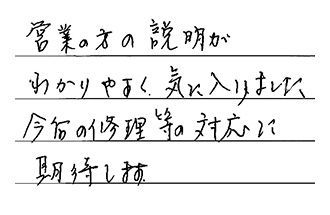 営業の方の説明が
わかりやすく、気に入りました
今后の修理等の対応に
期待します